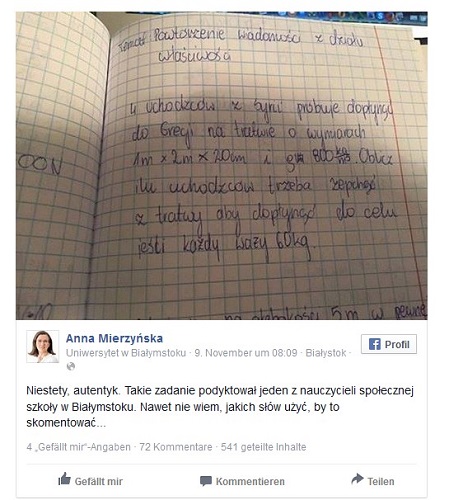 Temat: Powtórzenie wiadomości z działu
właściwości
4 uchodźców z Syrii próbuje dopłynąć
do Grecji na tratwie o wymiarach
1m × 2m × 20cm i 800 kg/m3. Oblicz
ilu uchodźców trzeba zepchnąć
z tratwy aby dopłynąć do celu
jeśli każdy waży 60kg.
głębokości 5 m w pewne
Anna Mierzyńska
Profil
Uniwersytet w Białymstoku · 9. November um 08:09 · Białystok ·
Niestety, autentyk. Takie zadanie podyktował jeden z nauczycieli społecznej
szkoły w Białymstoku. Nawet nie wiem, jakich słów użyć, by to
skomentować...
4 „Gefällt mir“-Angaben · 72 Kommentare · 541 geteilte Inhalte
Gefällt mir Kommentieren Teilen